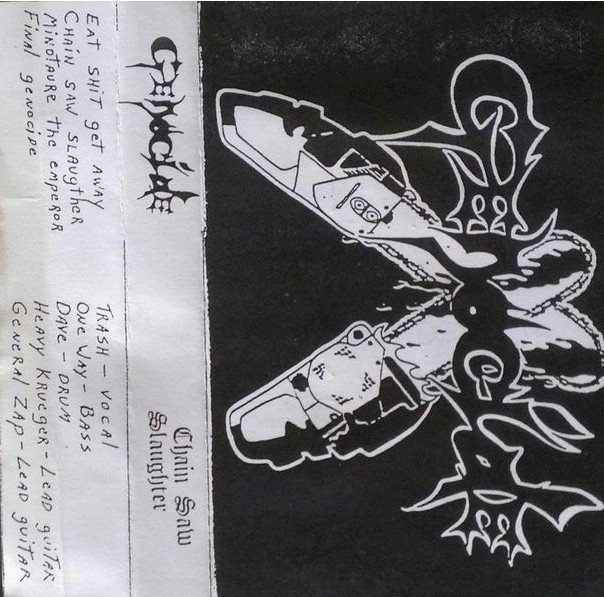 EAT SHIT get AWAY
CHAIN SAW SLAUGTHER
MINOTAURE THE EMPEROR
FINAL genocipe
TRASH - VOCAL
ONE WAY - BASS
DAVE - DRUM
HEAVY KRUEGER - LEAD guitar
GENERAL ZAP - LEAD guitar
GENOCIDE
Chain Saw
Slaughter
GENOCIDE